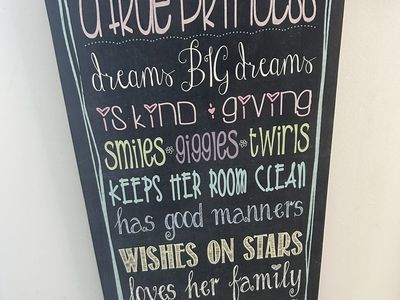 a true princess
dreams BIG dreams
is kind & giving
smiles giggles twirls
KEEPS HER ROOM CLEAN
has good manners
WISHES ON STARS
loves her family